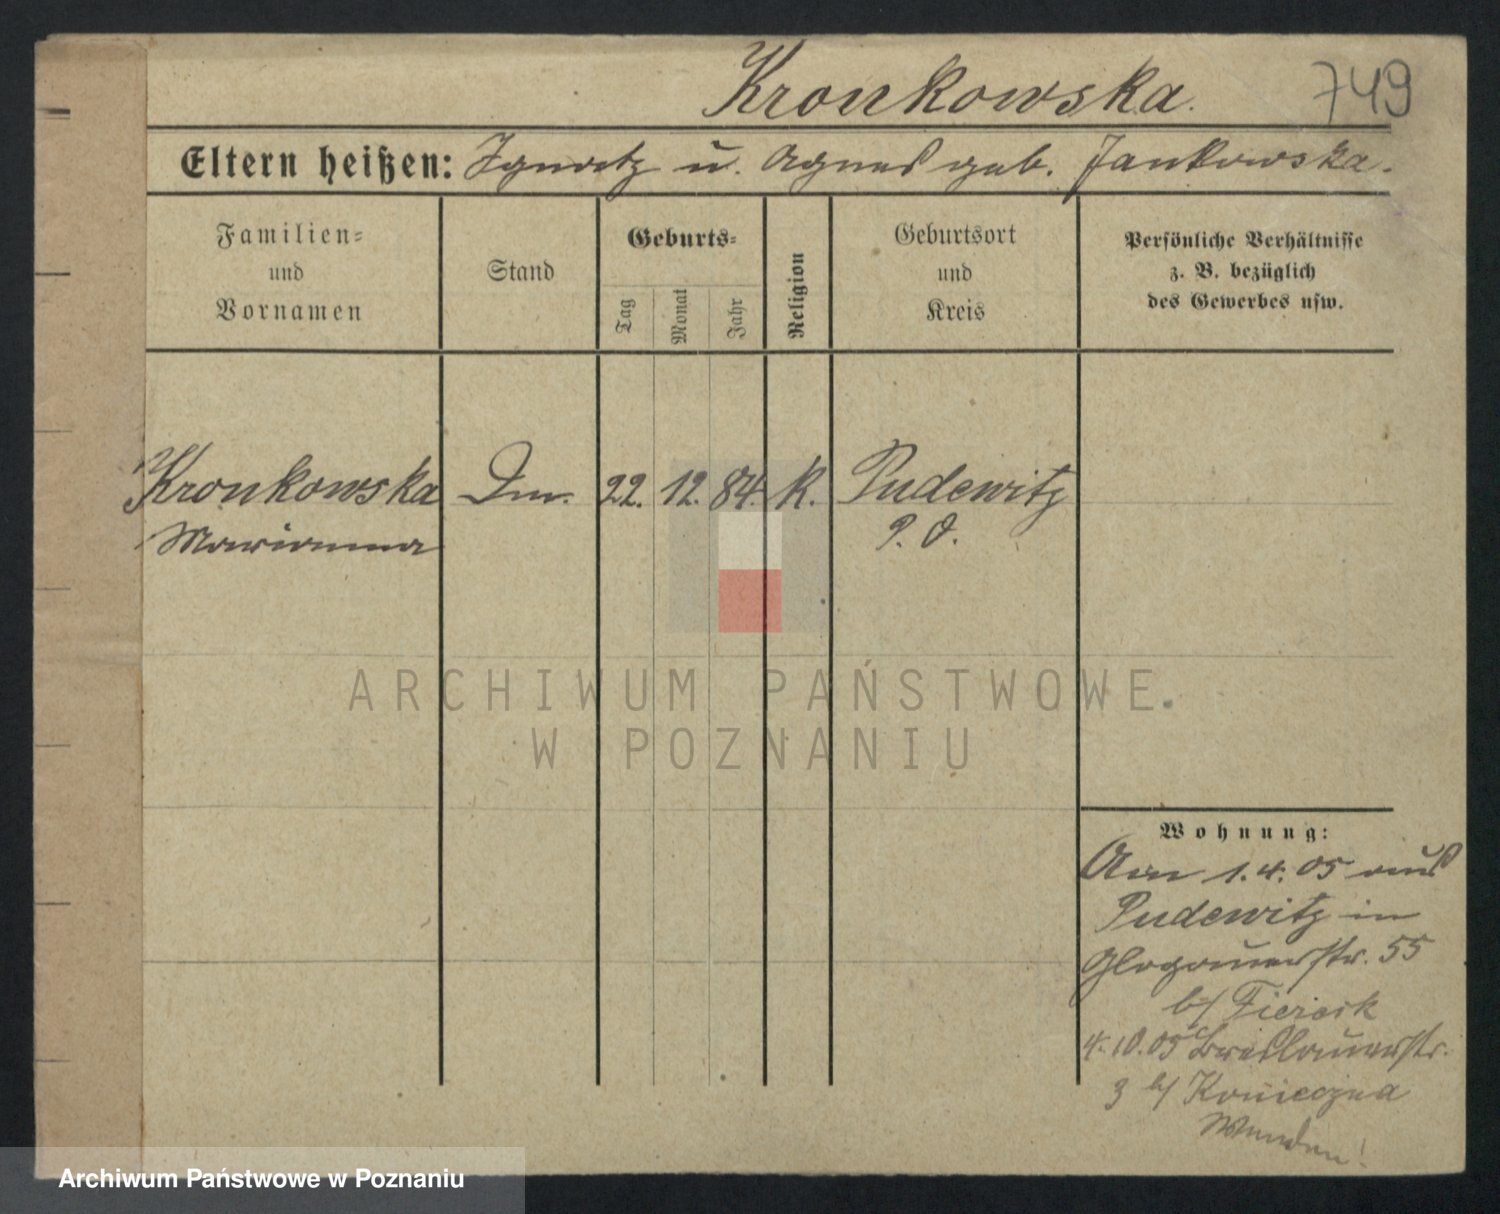 Kronkowska. 749
Eltern heißen: Ignatz u. Agnes geb. Jankowska.
Familien- und Vornamen
Stand
Geburts-
Tag Monat Jahr
Religion
Geburtsort und Kreis
Persönliche Verhältnisse z. B. bezüglich des Gewerbes usw.
Kronkowska 22. 12. 84. K. Pudewitz
Marianna P. O.
ARCHIWUM PAŃSTWOWE
W POZNANIU
Wohnung:
Am 1.4.05 aus
Pudewitz in
Glogauerstr. 55
b/
4.10.05 Breslauerstr.
3 b/ Konieczna
Archiwum Państwowe w Poznaniu